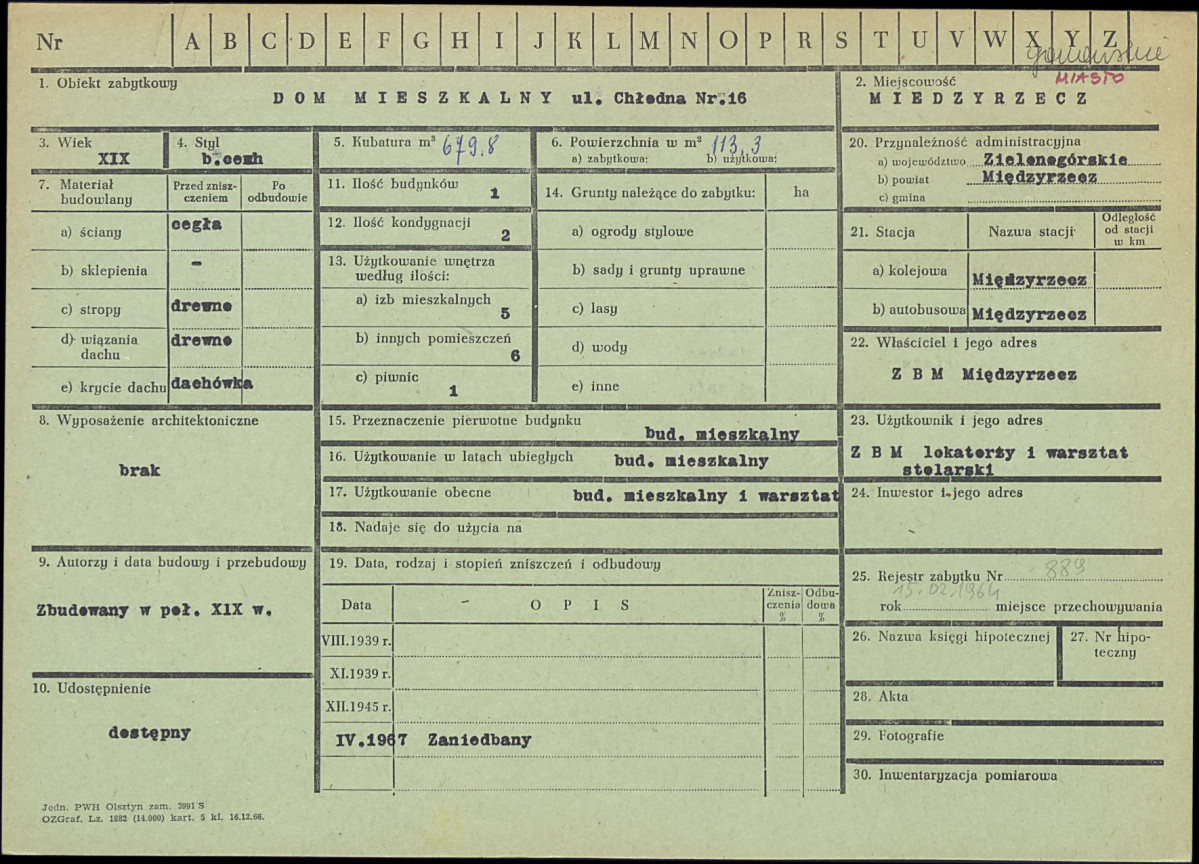 Nr A B C D E F G H I J K L M N O P R S T U V W X Y Z
MIASTO
1. Obiekt zabytkowy
DOM MIESZKALNY ul. Chłodna Nr.16
2. Miejscowość
MIEDZYRZECZ
3. Wiek
XIX
4. Styl
b.cech
5. Kubatura m³ 679.8
6. Powierzchnia w m² 113,3
a) zabytkowa: b) użytkowa:
20. Przynależność administracyjna
a) województwo Zielonogórskie
b) powiat Międzyrzecz
c) gmina
7. Materiał budowlany
Przed zniszczeniem
Po odbudowie
a) ściany cegła
b) sklepienia -
c) stropy drewno
d) wiązania dachu drewno
e) krycie dachu dachówka
11. Ilość budynków 1
12. Ilość kondygnacji 2
13. Użytkowanie wnętrza
według ilości:
a) izb mieszkalnych 5
b) innych pomieszczeń 6
c) piwnic 1
14. Grunty należące do zabytku: ha
a) ogrody stylowe
b) sady i grunty uprawne
c) lasy
d) wody
e) inne
21. Stacja
Nazwa stacji
Odległość
od stacji
w km
a) kolejowa Międzyrzecz
b) autobusowa Międzyrzecz
22. Właściciel i jego adres
Z B M Międzyrzecz
8. Wyposażenie architektoniczne
brak
15. Przeznaczenie pierwotne budynku
bud. mieszkalny
16. Użytkowanie w latach ubiegłych bud. mieszkalny
17. Użytkowanie obecne bud. mieszkalny i warsztat
18. Nadaje się do użycia na
23. Użytkownik i jego adres
Z B M lokatorży i warsztat
stolarski
24. Inwestor i jego adres
9. Autorzy i data budowy i przebudowy
Zbudowany w poł. XIX w.
19. Data, rodzaj i stopień zniszczeń i odbudowy
Data
- O P I S
Zniszczenia %
Odbudowa %
VIII.1939 r.
XI.1939 r.
XII.1945 r.
IV.1967 Zaniedbany
25. Rejestr zabytku Nr 889
15.02.1964
rok miejsce przechowywania
26. Nazwa księgi hipotecznej
27. Nr hipo-
teczny
28. Akta
29. Fotografie
30. Inwentaryzacja pomiarowa
10. Udostępnienie
dostępny
Jedn. PWH Olsztyn zam. 3991 S
OZGraf. Lz. 1882 (14.000) kart. 5 kl. 16.12.66.